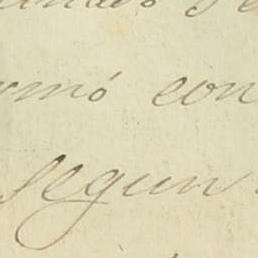 rmó con
segun